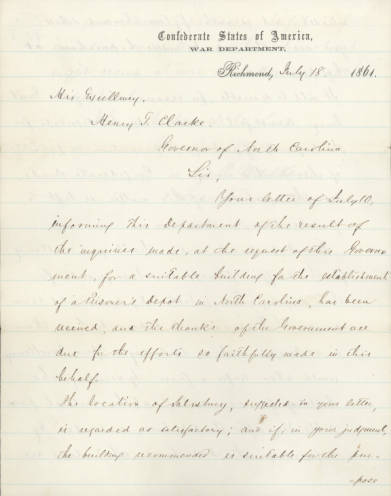 Confederate States of America,
WAR DEPARTMENT,
Richmond, July 18 1861.
His Excellency.
Henry T. Clarke.
Governor of North Carolina
Sir,
Your letter of July 10,
informing this Department of the result of
the inquiries made, at the request of this Govern-
ment, for a suitable building for the establishment
of a Prisoner's Depot in North Carolina, has been
received, and the thanks of the Government are
due for the efforts so faithfully made in this
behalf.
The location of Salisbury, suggested in your letter,
is regarded as satisfactory; and if, in your judgment,
the building recommended is suitable for the pur-
-pose